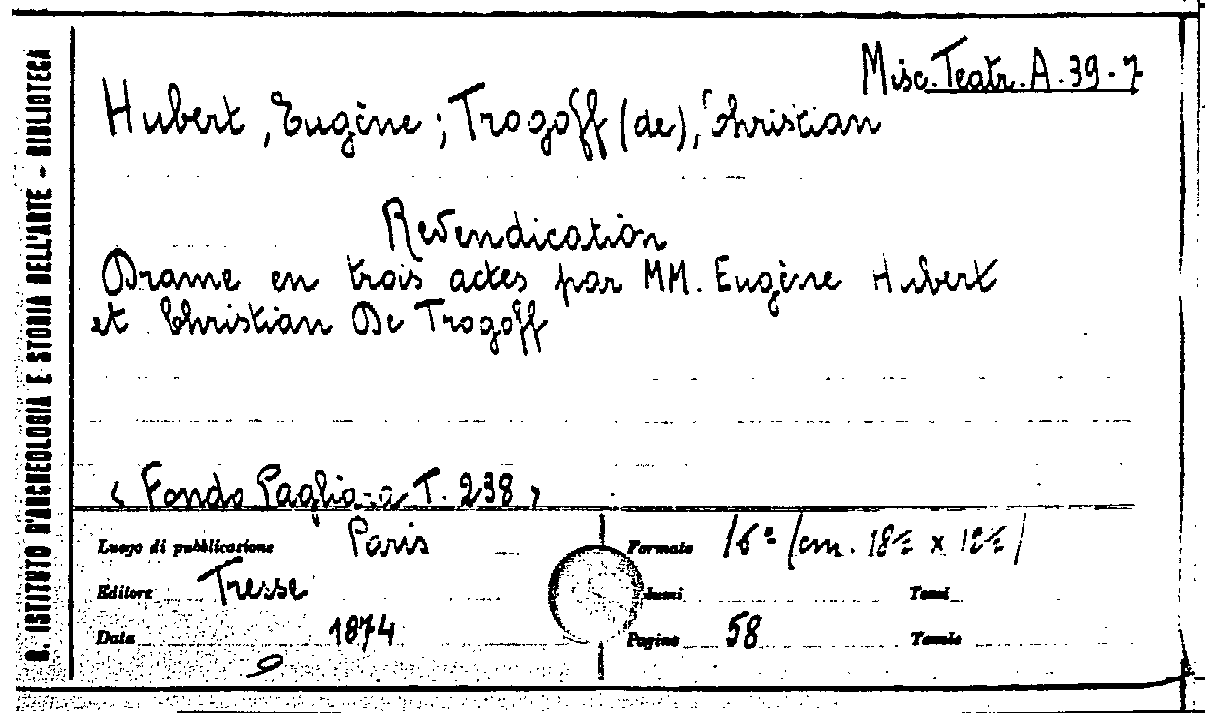 Misc. Teatr. A. 39-7
Hubert, Eugène; Trogoff (de), Christian
Revendication
Drame en trois actes par MM. Eugène Hubert
et Christian De Trogoff
< Fondo Pagliara T. 238 >
Luogo di pubblicazione Paris
Formato 16° (cm. 18½ x 12½)
Editore Tresse
Tomi
Data 1874
Pagine 58
Tavole
R. ISTITUTO D'ARCHEOLOGIA E STORIA DELL'ARTE - BIBLIOTECA